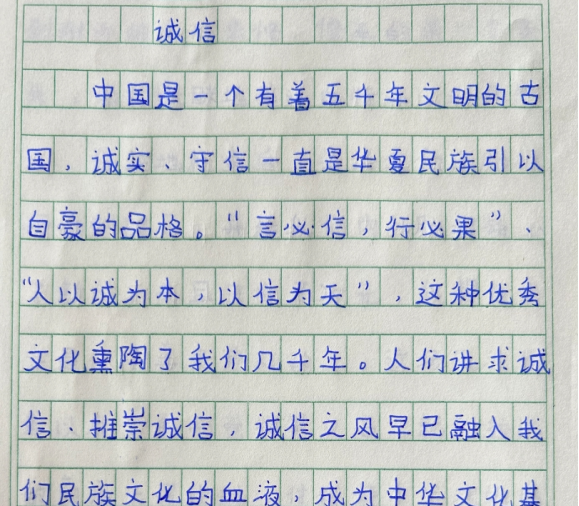 诚信
中国是一个有着五千年文明的古
国，诚实、守信一直是华夏民族引以
自豪的品格。“言必信，行必果”、
“人以诚为本，以信为天”，这种优秀
文化熏陶了我们几千年。人们讲求诚
信、推崇诚信，诚信之风早已融入我
们民族文化的血液，成为中华文化基